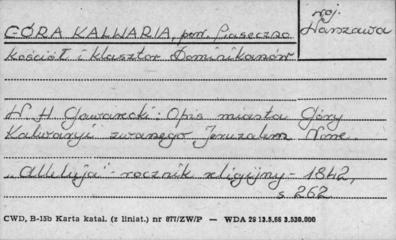 GÓRA KALWARIA, pow. Piaseczno
woj. Warszawa
Kościół i klasztor Dominikanów
W. H Gawarecki: Opis miasta Góry
Kalwaryi zwanego Jeruzalem Nowe.
„Alleluja" - rocznik religijny - 1842,
s 262
CWD, B-15b Karta katal. (z liniat.) nr 877/ZW/P — WDA 29 13.5.66 3.530.000